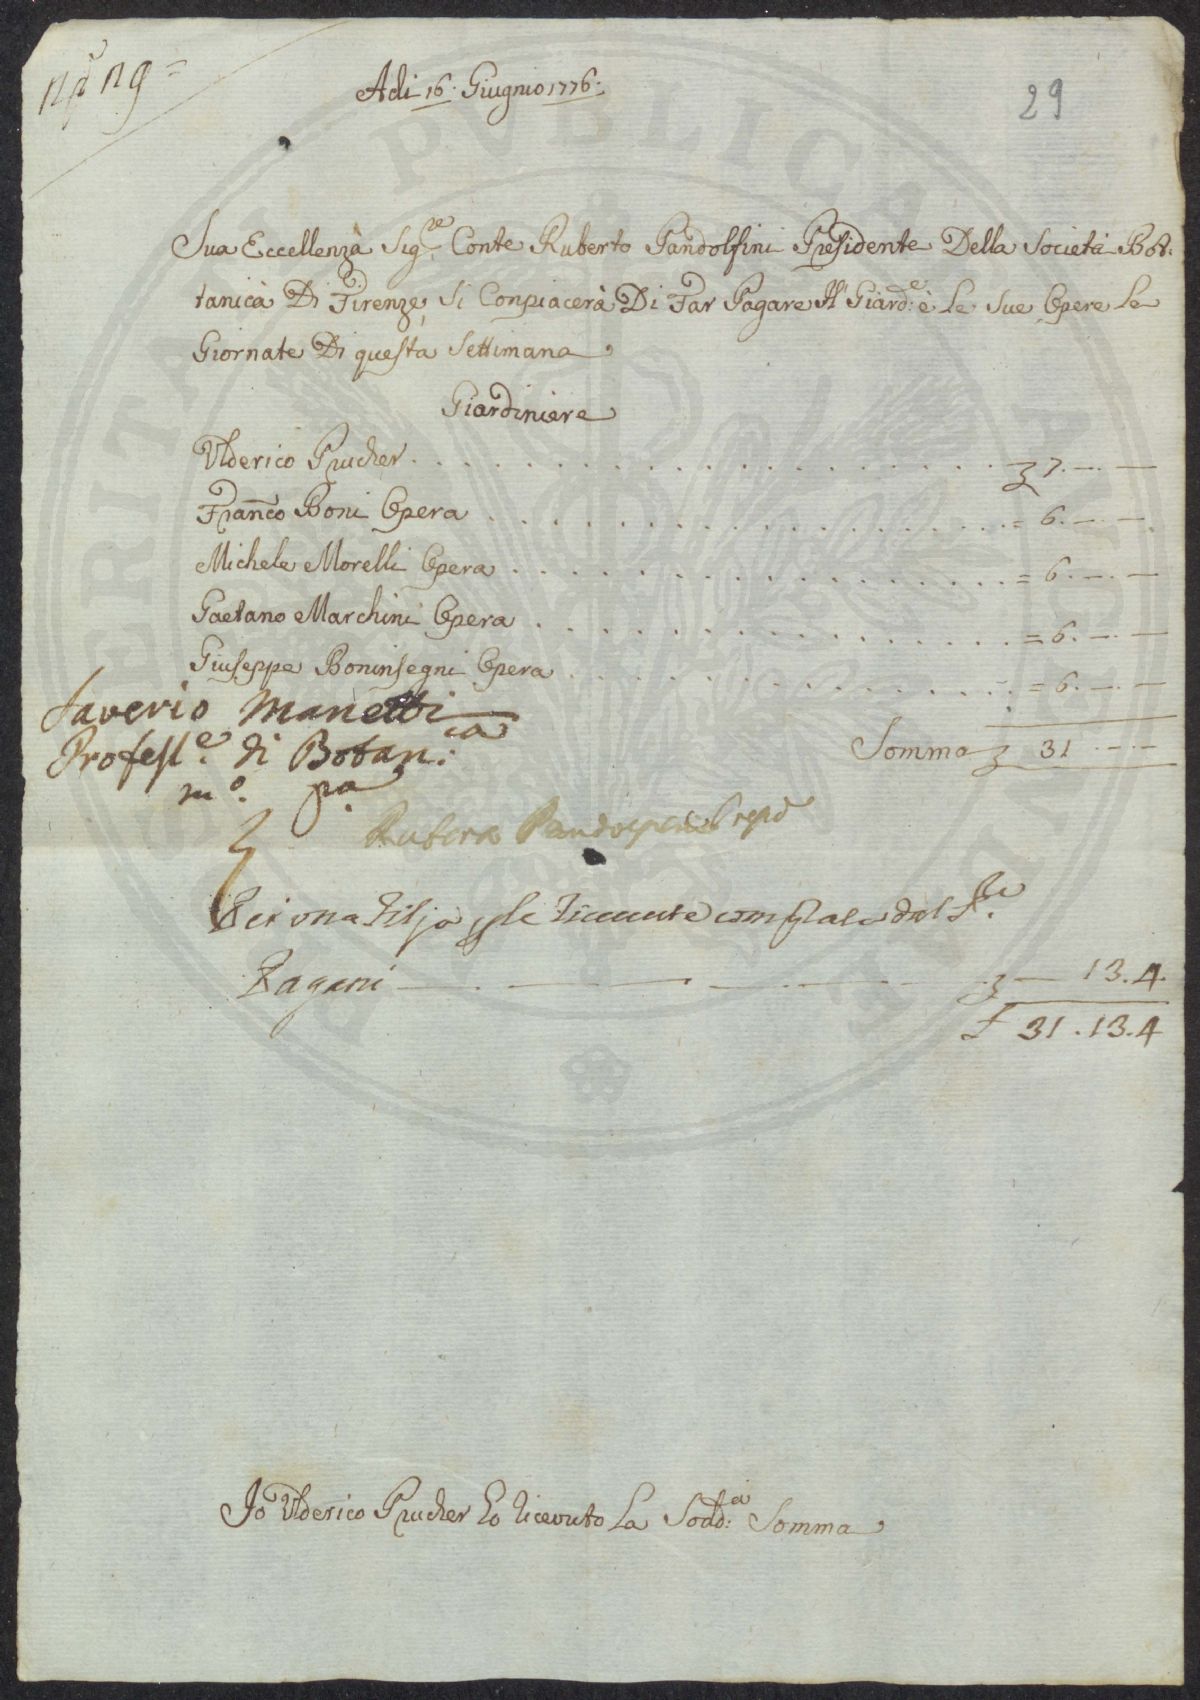 Adi 16. Giugnio 1776.
29
Sua Eccellenza Sig.re Conte Ruberto Pandolfini Presidente Della Società Bot:
tanica Di Firenze, Si Conpiacerà Di Far Pagare Il Giard.e è Le Sue Opere Le
Giornate Di questa Settimana
Giardiniere
Ulderico Prucher . . . . £ 7. — . —
Franco Boni Opera . . . . = 6. — . —
Michele Morelli Opera . . . . = 6. — . —
Gaetano Marchini Opera . . . . = 6. — . —
Giuseppe Boninsegni Opera . . . . = 6. — . —
Saverio Manetti
Profess.e di Botan.ca
m.o pa
Somma £ 31 . — . —
Ruberto Pandolfini Presid
Per una Filza p le Riceuute comprata dal S.re
Pagani — £ — 13.4.
£ 31.13.4
Io Ulderico Prucher ho ricevuto La Sodd:a Somma
PVBLICAE
VERITATI